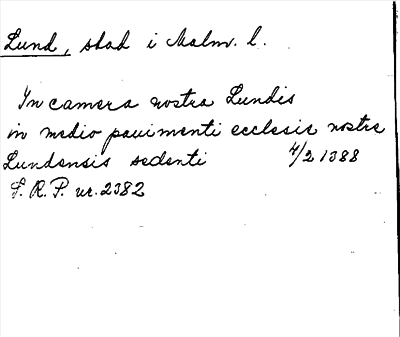 Lund, stad i Malm. l.
In camera nostra Lundis
in medio pauimenti ecclesie nostre
Lundensis sedenti 4/2 1388
S. R. P. nr. 2382